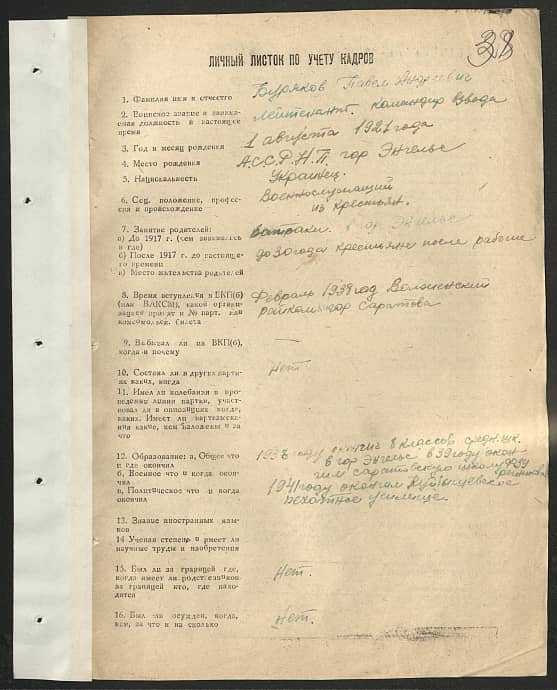 38
ЛИЧНЫЙ ЛИСТОК ПО УЧЕТУ КАДРОВ
1. Фамилия имя и отчество
Буряков Павел Андреевич
2. Воинское звание и занимае-
мая должность в настоящее
время
Лейтенант. Командир взвода
3. Год и месяц рождения
1 августа 1921 года
4. Место рождения
А.С.С.Р.Н.П. гор Энгельс
5. Национальность
Украинец.
6. Соц. положение, профес-
сия и происхождение
Военнослужащий
из крестьян.
7. Занятие родителей:
а) До 1917 г. (чем занимались
и где)
б) После 1917 г. до настояще-
го времени
в) Место жительства родителей
батраки в гор Энгельсе
до 30 года крестьяне после рабочие
8. Время вступления в ВКП(б)
(или ВЛКСМ), какой органи-
зацией принят и № парт. или
комсомольск. билета
Февраль 1938 год
райкома гор Саратова
9. Выбывал ли из ВКП(б),
когда и почему
—
10. Состоял ли в других парти-
ях каких, когда
Нет
11. Имел ли колебания в про-
ведении линии партии, участ-
вовал ли в оппозициях когда,
каких. Имеет ли партвзыска-
ния какие, кем наложены и за
что
12. Образование: а, Общее что
и где окончил
б, Военное что и когда окон-
чил
в, Политическое что и когда
окончил
году окончил 8 классов средн. шк.
в гор Энгельс в 39 году окон
чил саратовскую школу ФЗУ
1941 году окончил Куйбышевское
пехотное училище.
13. Знание иностранных язы-
ков
14 Ученая степень и имеет ли
научные труды и изобретения
15. Был ли за границей где,
когда имеет ли родственников
за границей кто, где нахо-
дятся
Нет.
16. Был ли осужден, когда,
кем, за что и на сколько
Нет.